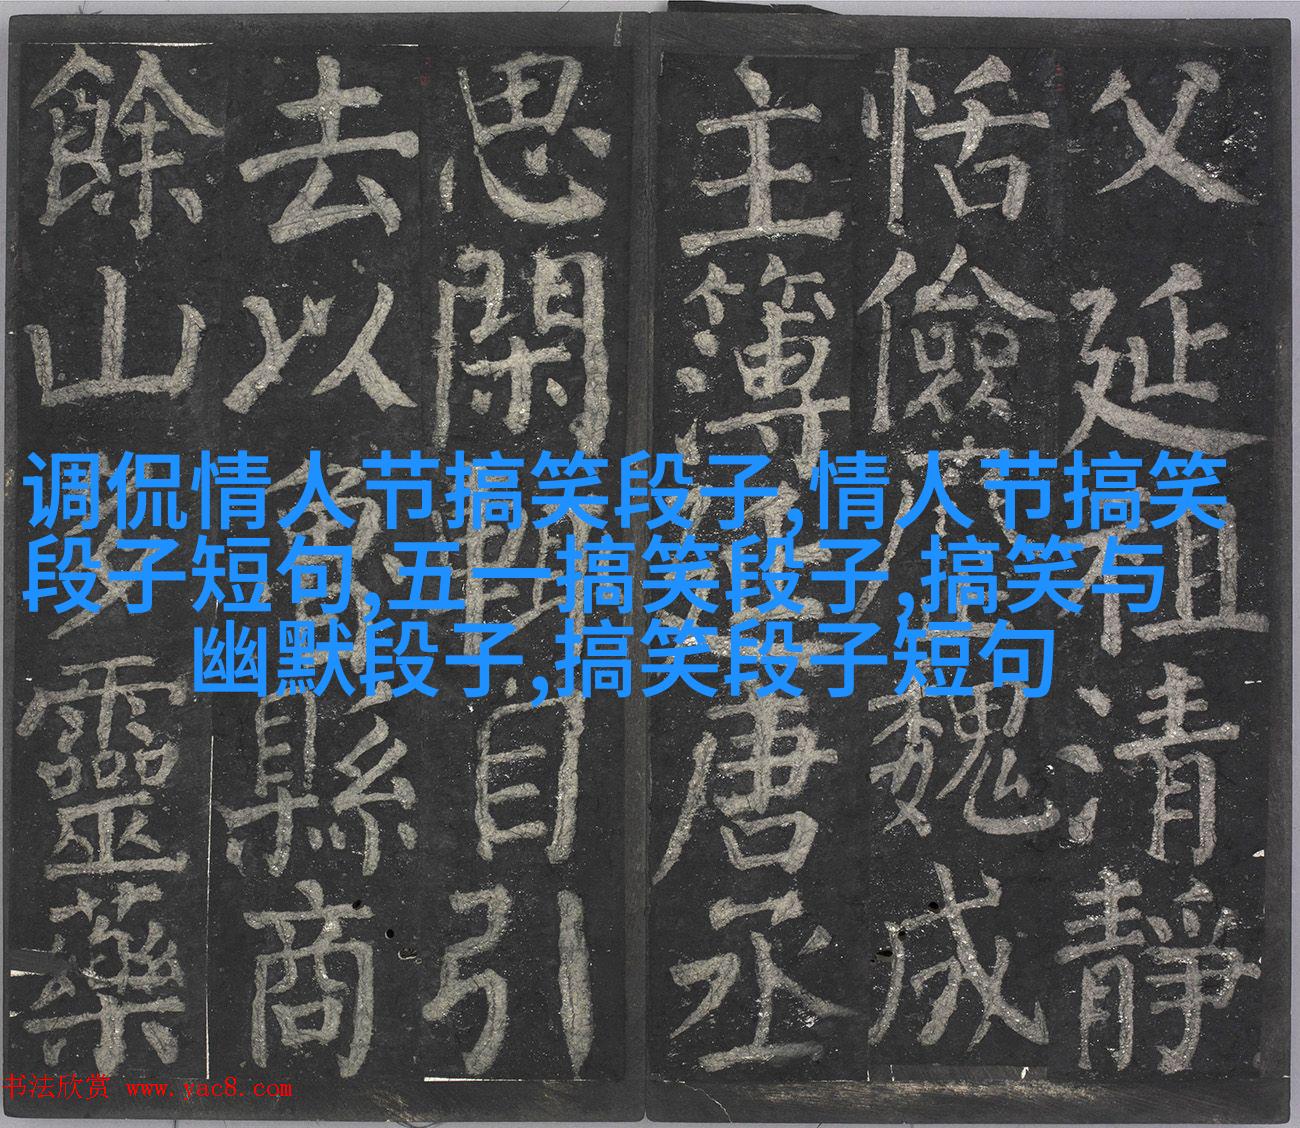 调侃情人节搞笑段子,情人节搞笑
段子短句,五一搞笑段子,搞笑与
幽默段子,搞笑段子短句
父延祖清靜
恬儉魏成
主簿唐丞
思閑自引
去以魯縣商
餘山多靈藥
书法欣赏 www.yac8.com